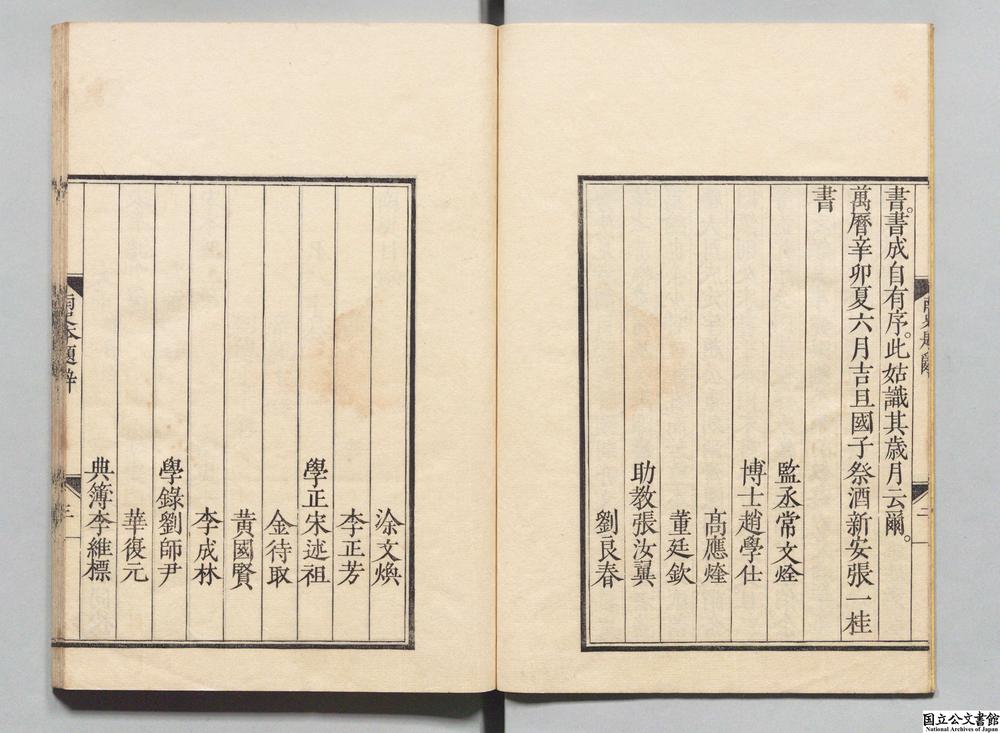 書。書成自有序。此姑識其歲月云爾。
萬曆辛卯夏六月吉旦國子祭酒新安張一桂
書
監丞常文烇
博士趙學仕
髙應煃
董廷欽
助教張汝翼
劉良春
涂文煥
李正芳
學正宋述祖
金待取
黃國賢
李成林
學錄劉師尹
華復元
典簿李維標
三
国立公文書館
National Archives of Japan